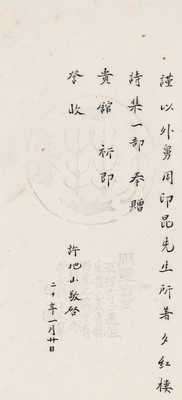 謹以外舅周印昆先生所著夕紅樓
詩集一部奉贈
貴館祈即
詧收
許地山敬啓
二十年一月廿日